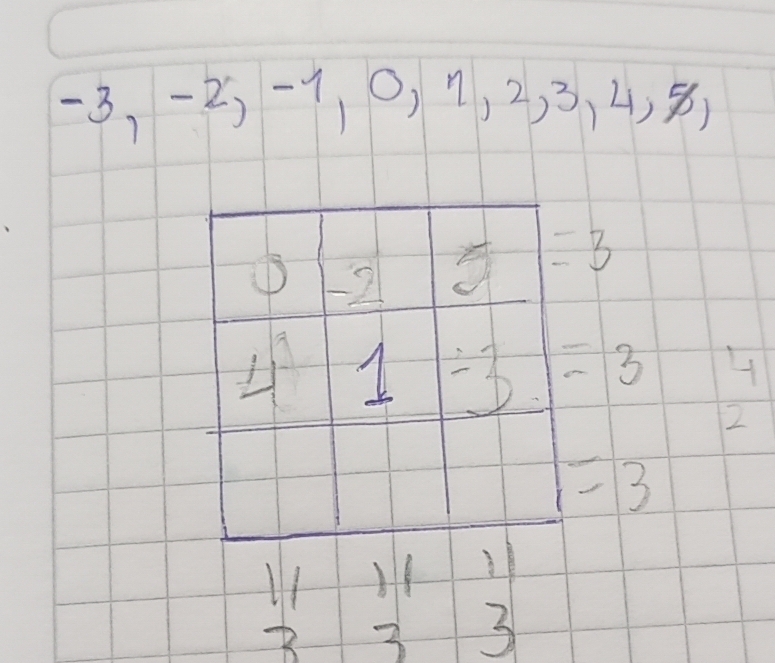 -3, -2, -1, 0, 1, 2, 3, 4, 5,
0 -2 5 = 3
4 1 -3 = 3 4
2
= 3
= = =
3 3 3